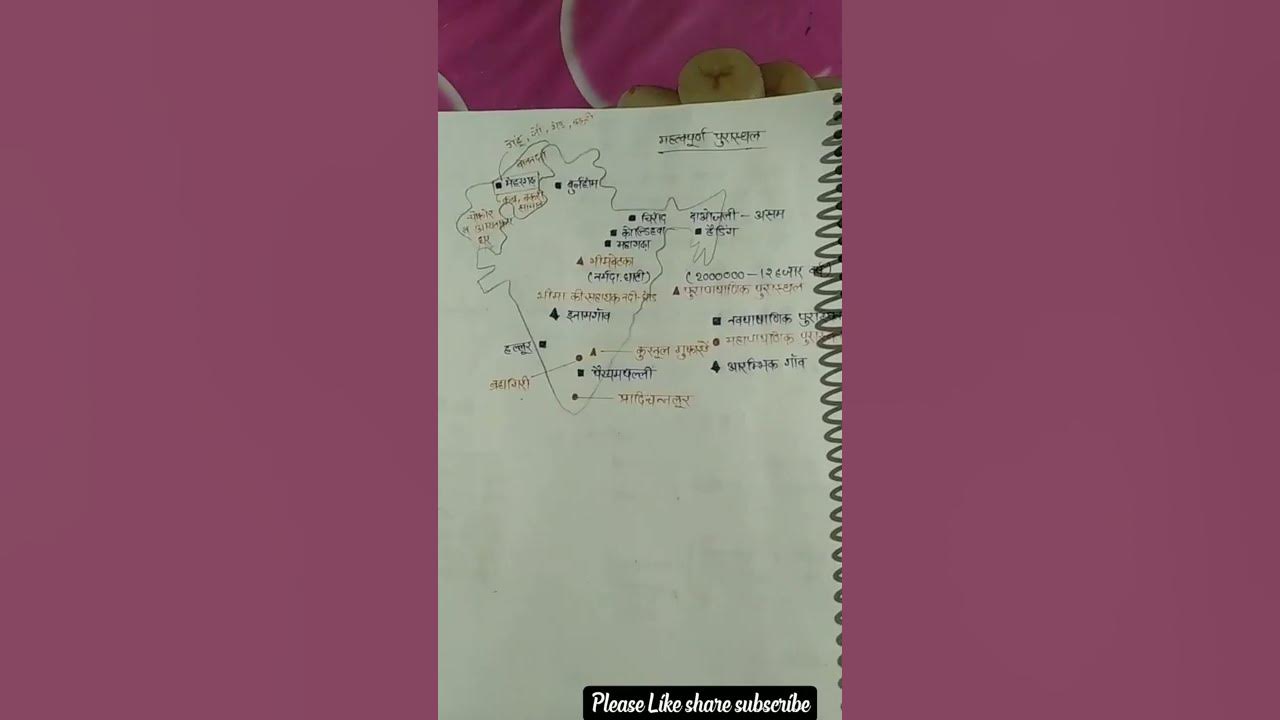 महत्वपूर्ण पुरास्थल
गेहूं, जौ, भेड़, बकरी
मेहरगढ़
बुर्जहोम
कब्र, बकरी
चौकोर
घर
चिरांद
दाओजली - असम
हैडिंग
कोल्डिहवा
महागढ़ा
भीमबेटका
(नर्मदा घाटी)
(2000000 - 12 हजार वर्ष)
पुरापाषाणिक पुरास्थल
भीमा की सहायक नदी-घोड
इनामगॉव
नवपाषाणिक
महापाषाणिक
आरम्भिक गॉव
हल्लूर
कुरनूल गुफाएँ
ब्रह्मगिरी
पैय्यमपल्ली
आदिचन्नलूर
Please Like share subscribe